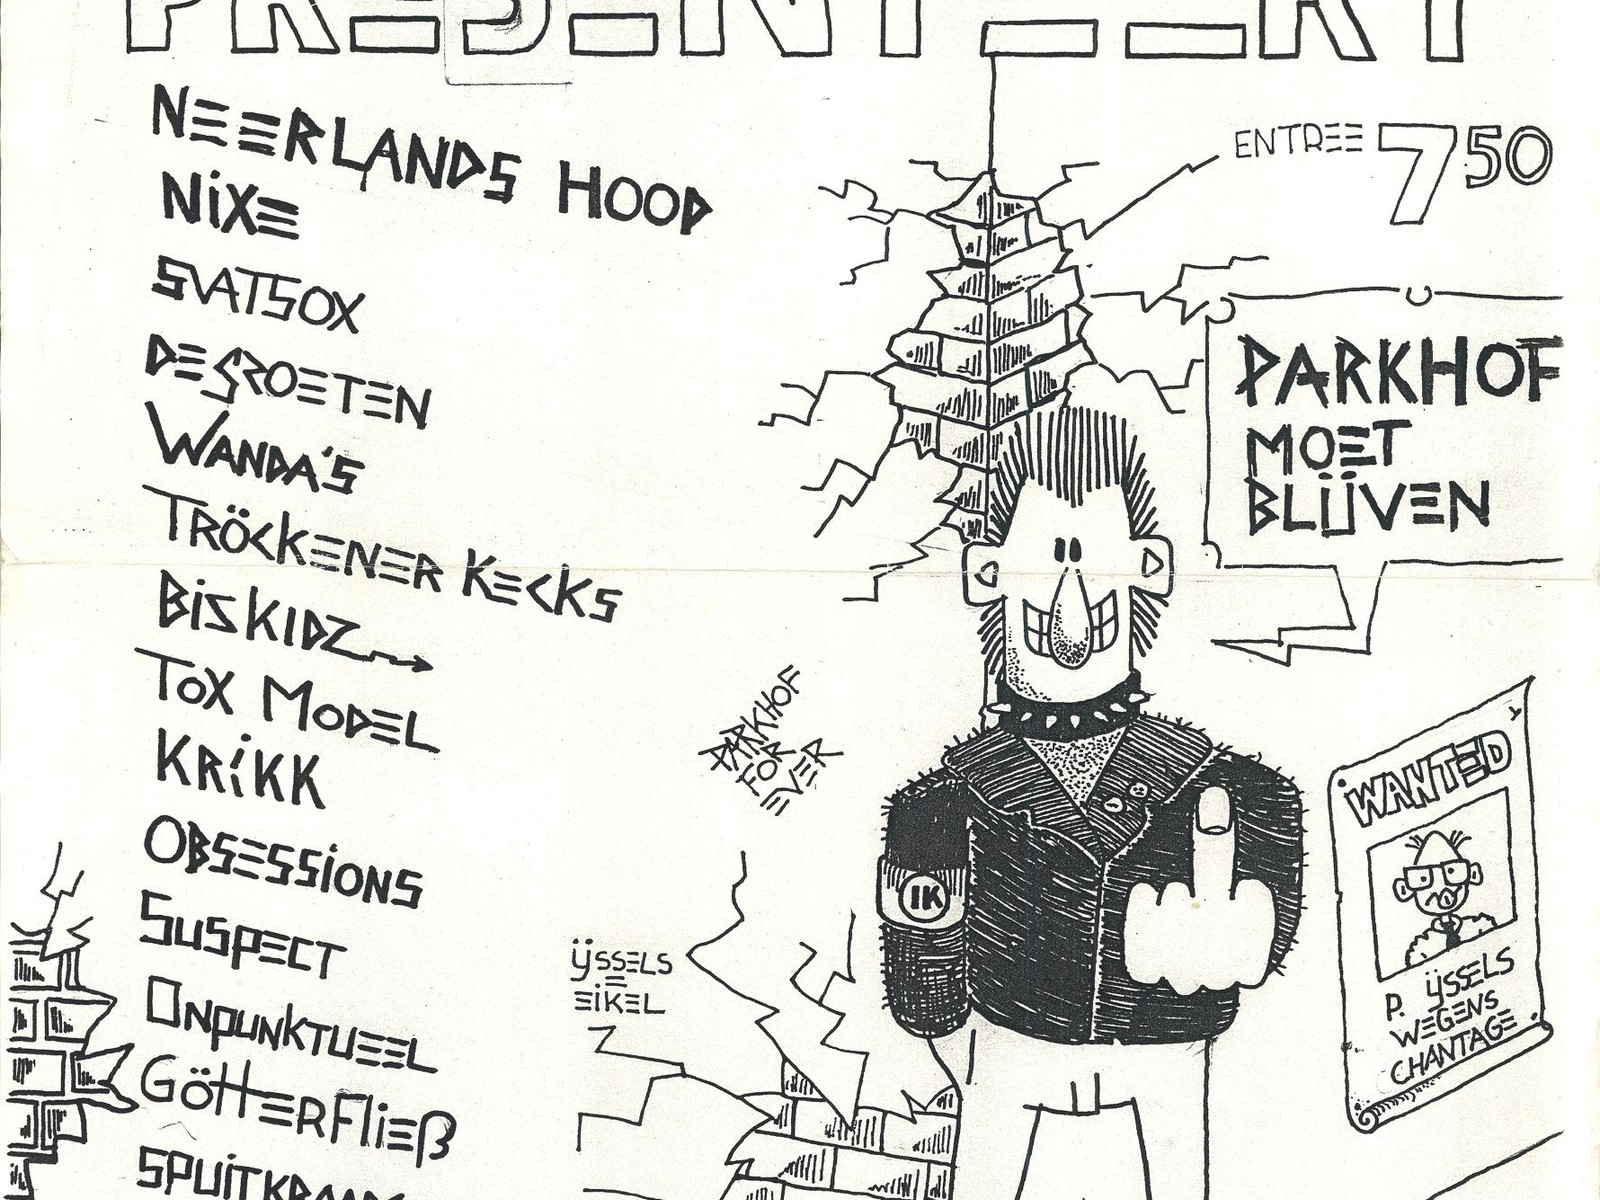 PRESENTEERT
NEERLANDS HOOP
NIXE
SVATSOX
DE GROETEN
WANDA'S
TRÖCKENER KECKS
BISKIDZ
TOX MODEL
KRIKK
OBSESSIONS
SUSPECT
ONPUNKTUEEL
GÖTTERFließ
ENTREE 7 50
PARKHOF
MOET
BLÜVEN
PARKHOF
FOR
EVER
IK
ÿSSELS
=
EIKEL
WANTED
P. ÿSSELS
WEGENS
CHANTAGE